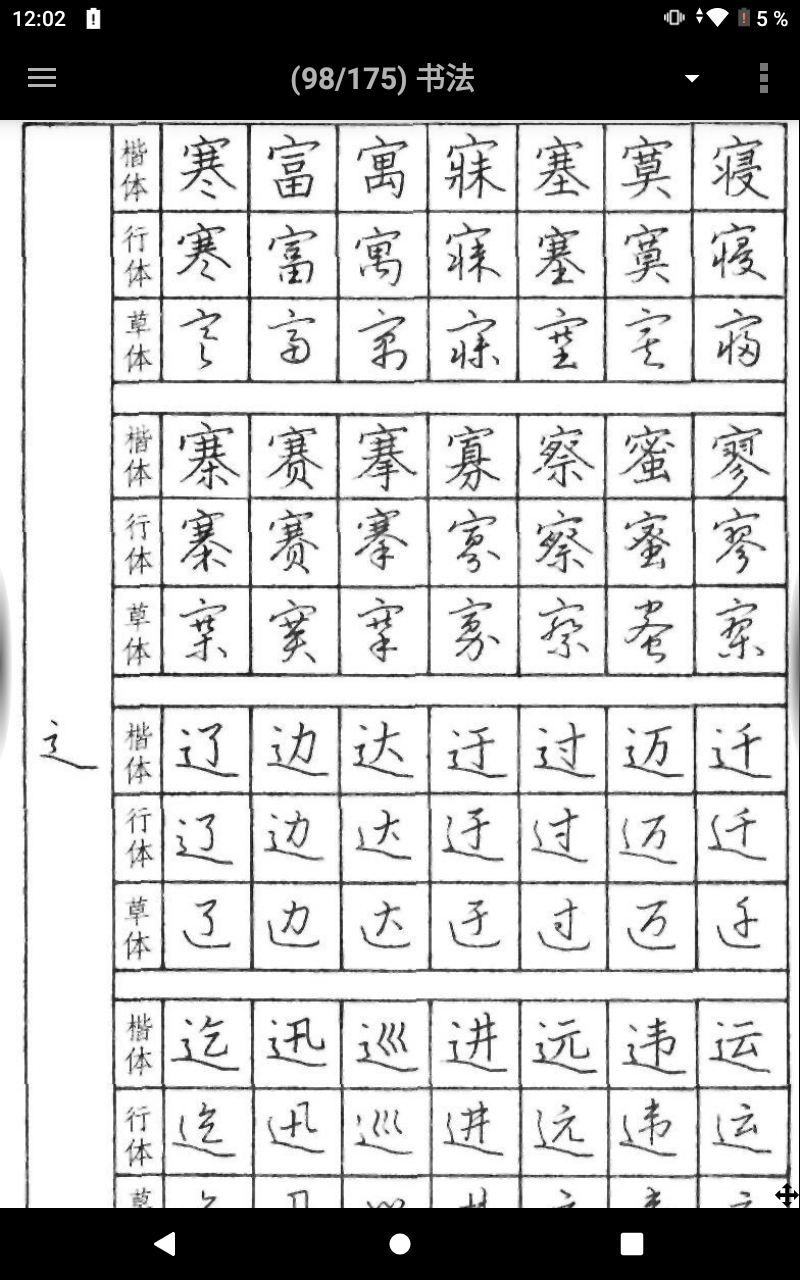 12:02 5 %
(98/175) 书法
楷体 寒 富 寓 寐 塞 寞 寝
行体 寒 富 寓 寐 塞 寞 寝
草体 寒 富 寓 寐 塞 寞 寝
楷体 寨 赛 搴 寡 察 蜜 寥
行体 寨 赛 搴 寡 察 蜜 寥
草体 寨 赛 搴 寡 察 蜜 寥
辶
楷体 辽 边 达 迂 过 迈 迁
行体 辽 边 达 迂 过 迈 迁
草体 辽 边 达 迂 过 迈 迁
楷体 迄 迅 巡 进 远 违 运
行体 迄 迅 巡 进 远 违 运
草